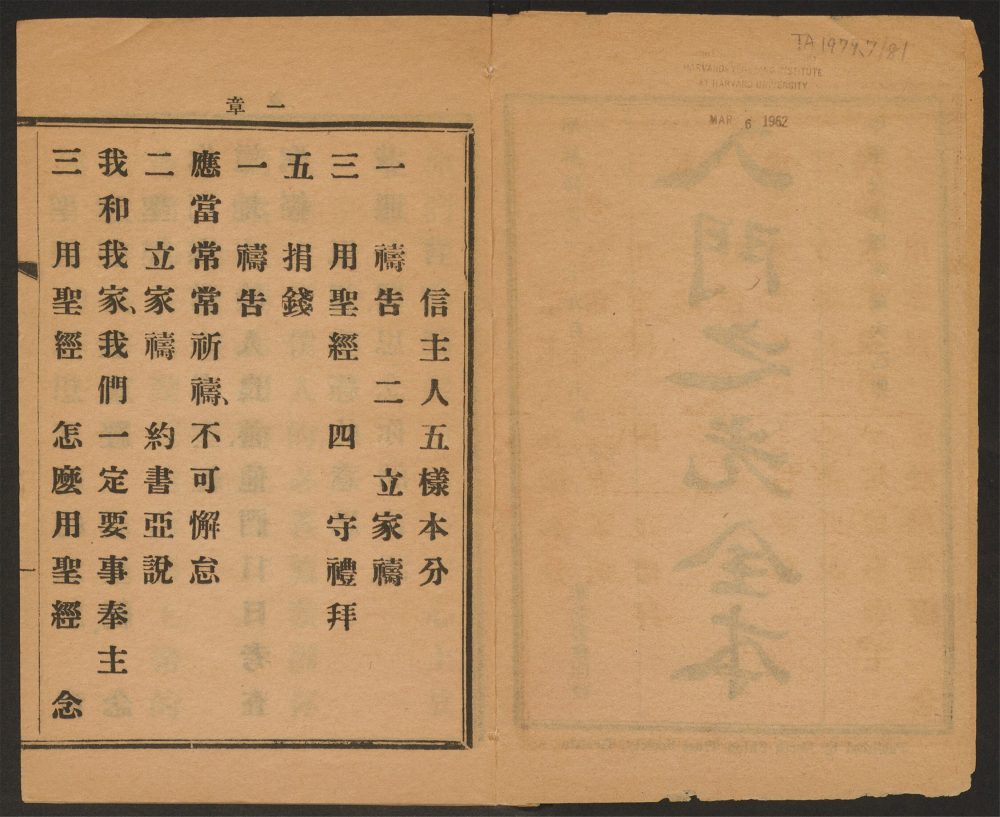 TA 1979.7/81
HARVARD-YENCHING INSTITUTE
AT HARVARD UNIVERSITY
MAR 6 1962
一章
信主人五樣本分
一 禱吿 二 立家禱
三 用聖經 四 守禮拜
五 捐錢
一 禱吿
應當常常祈禱、不可懈怠
二 立家禱 約書亞說
我和我家、我們一定要事奉主
三 用聖經 怎麽用聖經 念